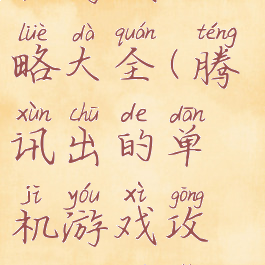 lüè dà quán téng
略大全(腾
xùn chū de dān
讯出的单
jī yóu xì gōng
机游戏攻